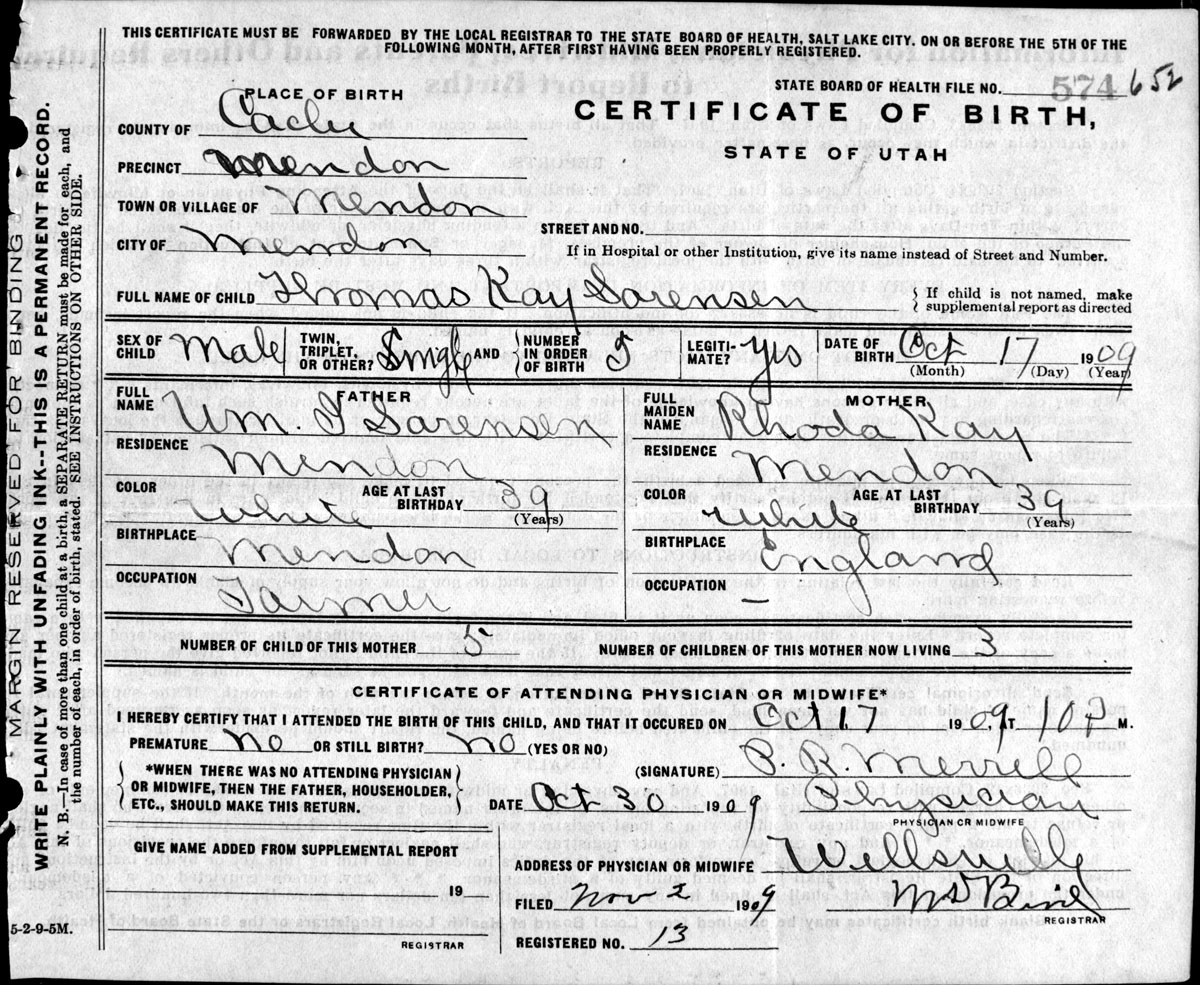 THIS CERTIFICATE MUST BE FORWARDED BY THE LOCAL REGISTRAR TO THE STATE BOARD OF HEALTH, SALT LAKE CITY. ON OR BEFORE THE 5TH OF THE
FOLLOWING MONTH, AFTER FIRST HAVING BEEN PROPERLY REGISTERED.
STATE BOARD OF HEALTH FILE NO. 574 652
PLACE OF BIRTH
CERTIFICATE OF BIRTH,
STATE OF UTAH
COUNTY OF Cache
PRECINCT Mendon
TOWN OR VILLAGE OF Mendon
STREET AND NO.
CITY OF Mendon
If in Hospital or other Institution, give its name instead of Street and Number.
FULL NAME OF CHILD Thomas Kay Sorensen
If child is not named, make
supplemental report as directed
SEX OF CHILD Male TWIN, TRIPLET, OR OTHER? Single AND NUMBER IN ORDER OF BIRTH 5 LEGITI-MATE? Yes DATE OF BIRTH Oct 17 1909
(Month) (Day) (Year)
FATHER
FULL NAME Wm. I Sorensen
RESIDENCE Mendon
COLOR White AGE AT LAST BIRTHDAY 39
(Years)
BIRTHPLACE Mendon
OCCUPATION Farmer
MOTHER
FULL MAIDEN NAME Rhoda Kay
RESIDENCE Mendon
COLOR White AGE AT LAST BIRTHDAY 39
(Years)
BIRTHPLACE England
OCCUPATION –
NUMBER OF CHILD OF THIS MOTHER 5 NUMBER OF CHILDREN OF THIS MOTHER NOW LIVING 3
CERTIFICATE OF ATTENDING PHYSICIAN OR MIDWIFE*
I HEREBY CERTIFY THAT I ATTENDED THE BIRTH OF THIS CHILD, AND THAT IT OCCURED ON Oct 17 1909 T 10 P M.
PREMATURE No OR STILL BIRTH? No (YES OR NO)
*WHEN THERE WAS NO ATTENDING PHYSICIAN
OR MIDWIFE, THEN THE FATHER, HOUSEHOLDER,
ETC., SHOULD MAKE THIS RETURN.
(SIGNATURE) P. R. Merrell
DATE Oct 30 1909 Physician
PHYSICIAN OR MIDWIFE
GIVE NAME ADDED FROM SUPPLEMENTAL REPORT
19
REGISTRAR
ADDRESS OF PHYSICIAN OR MIDWIFE Wellsville
FILED Nov 2 1909 M D Bird
REGISTRAR
REGISTERED NO. 13
5-2-9-5M.
MARGIN RESERVED FOR BINDING
WRITE PLAINLY WITH UNFADING INK--THIS IS A PERMANENT RECORD.
N. B.—In case of more than one child at a birth, a SEPARATE RETURN must be made for each, and
the number of each, in order of birth, stated. SEE INSTRUCTIONS ON OTHER SIDE.